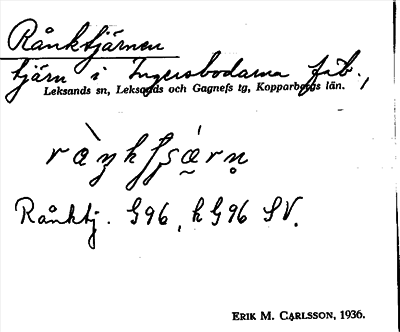 Rånktjärnen
tjärn i Ingersbodarna fäb.,
Leksands sn, Leksands och Gagnefs tg, Kopparbergs län.
Rånktj. G96, k G96 SV.
ERIK M. CARLSSON, 1936.